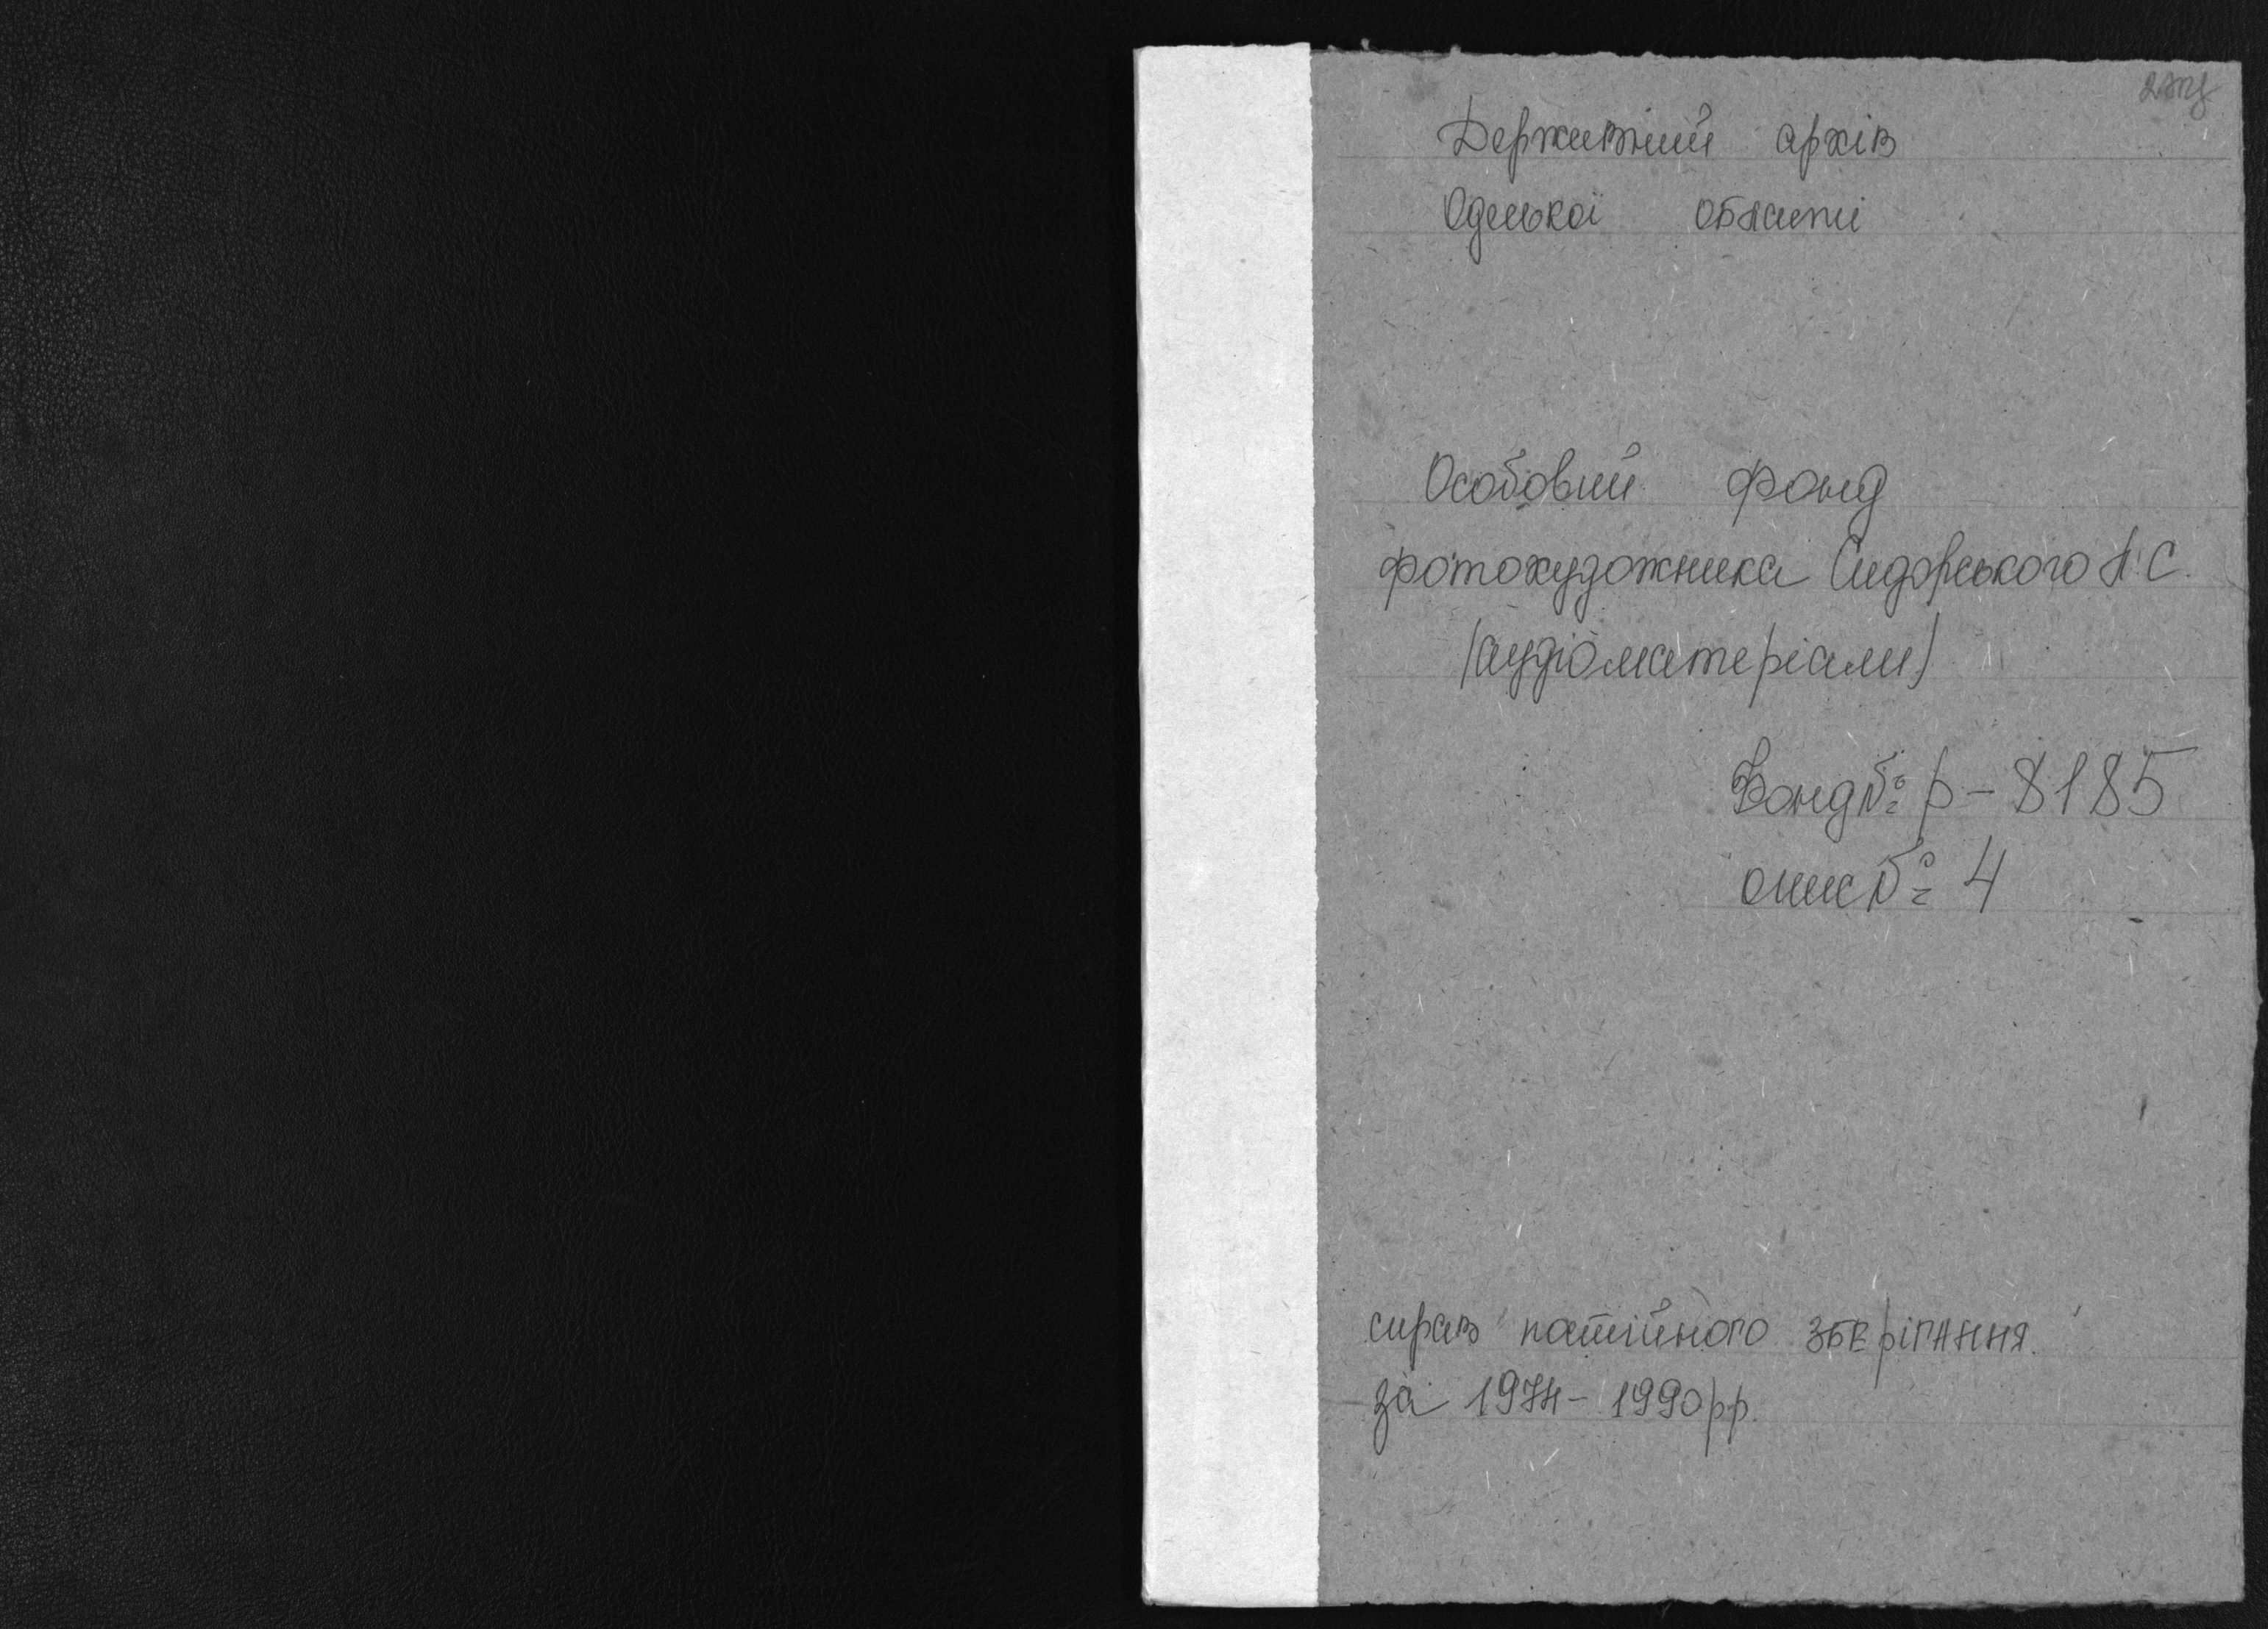 Державний архів
Одеської області
Особовий фонд
фотохудожника Сидорського Л.С.
/аудіоматеріали/
Фонд № р-8185
опис № 4
справ постійного зберігання
за 1974-1990рр.